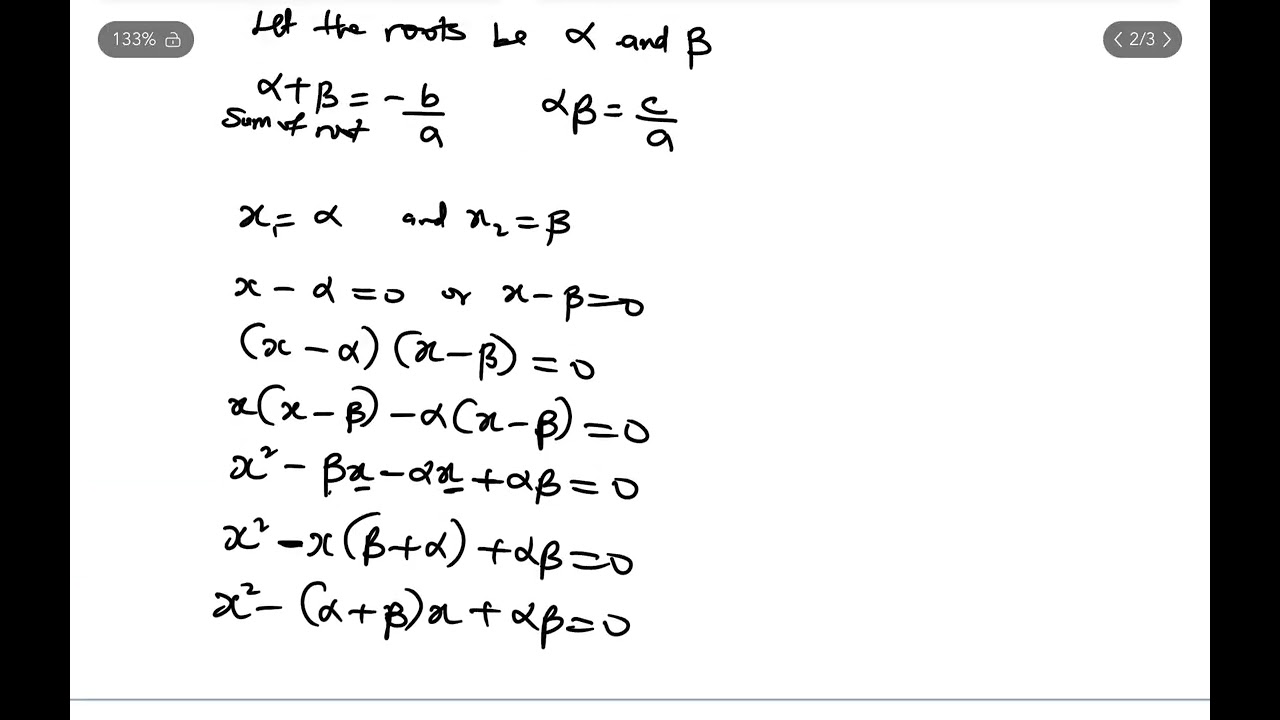 133%
< 2/3 >
Let the roots be α and β
α+β = -b/a αβ = c/a
Sum of root
x₁ = α and x₂ = β
x - α = 0 or x - β = 0
(x - α) (x - β) = 0
x(x - β) - α(x - β) = 0
x² - βx - αx + αβ = 0
x² - x(β + α) + αβ = 0
x² - (α + β)x + αβ = 0